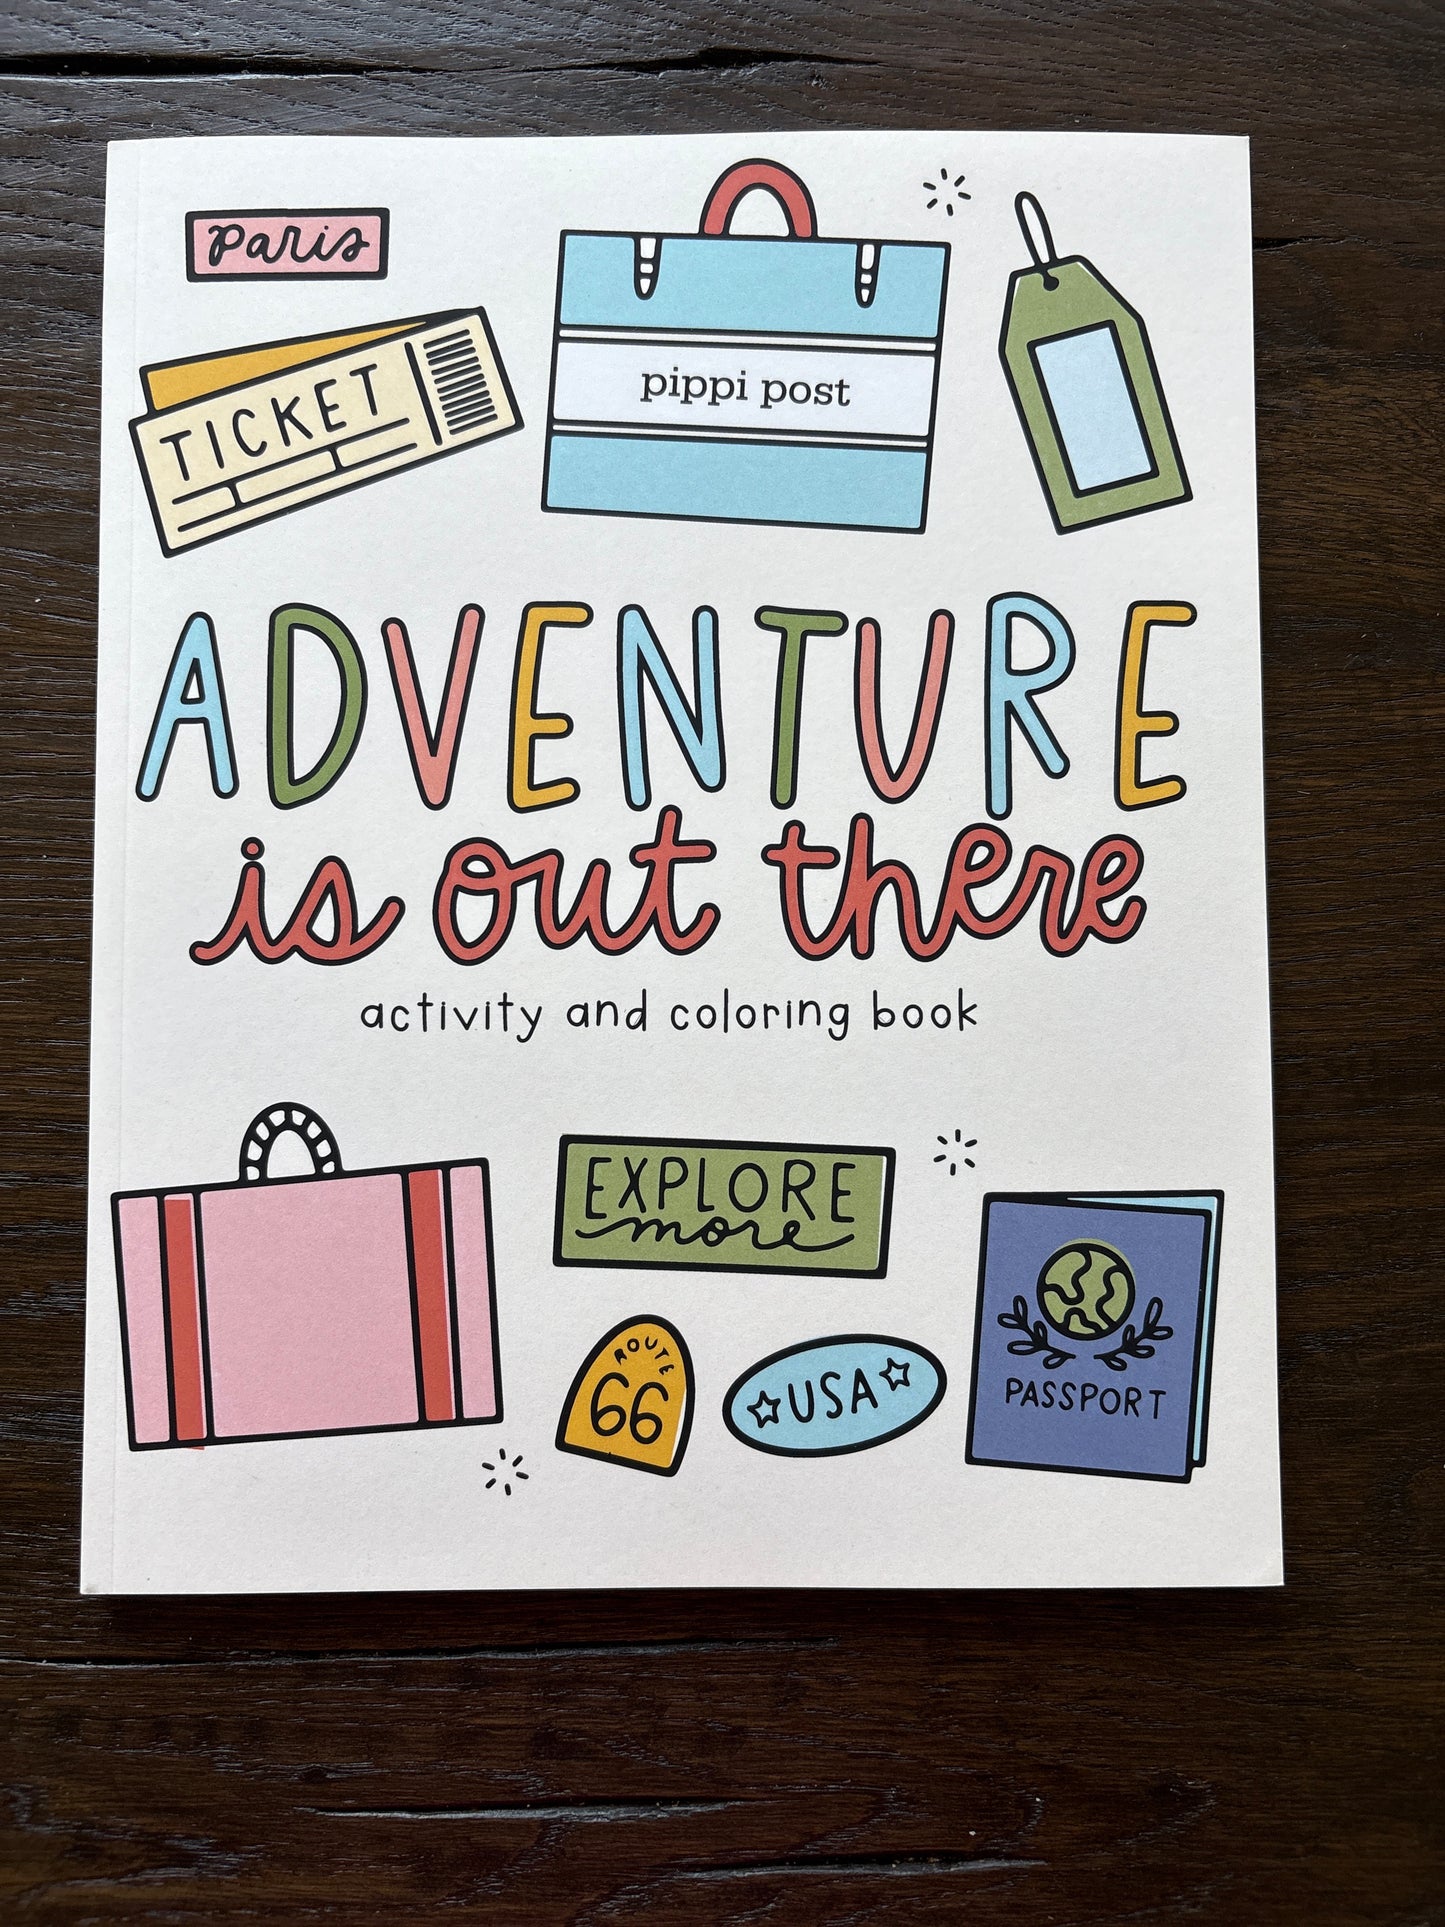 Paris
TICKET
pippi post
ADVENTURE
is out there
activity and coloring book
EXPLORE
more
ROUTE
66
USA
PASSPORT